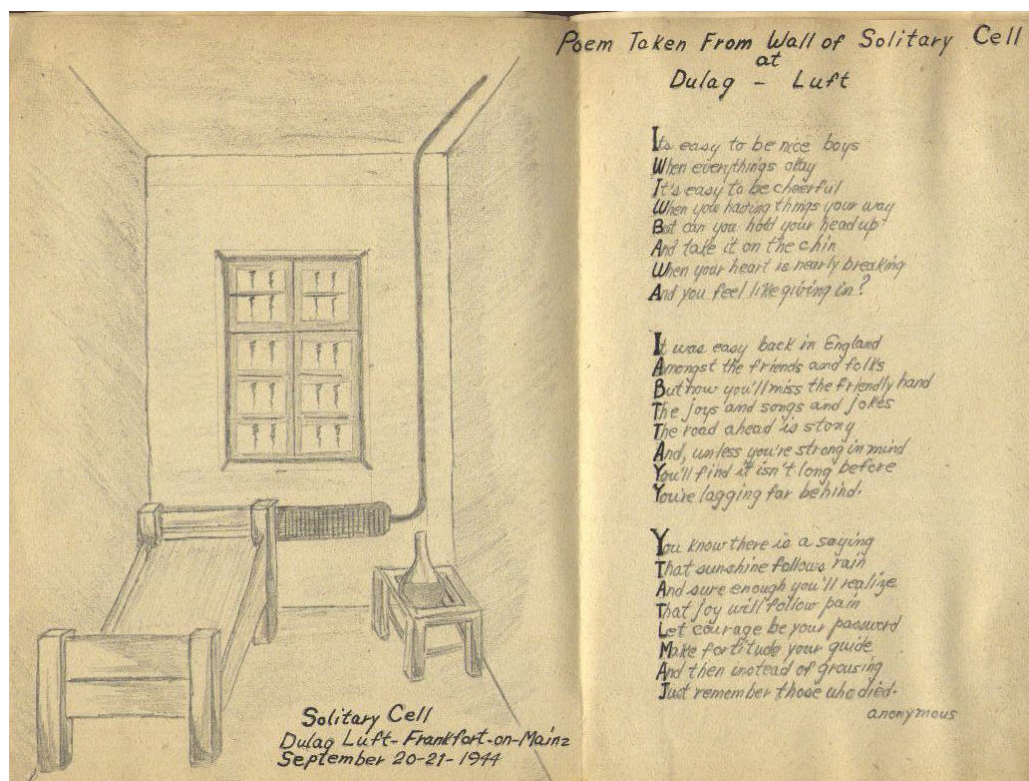 Solitary Cell
Dulag Luft- Frankfort-on-Mainz
September 20-21-1944
Poem Taken From Wall of Solitary Cell
at
Dulag - Luft
Its easy to be nice boys
When everythings okay
It's easy to be cheerful
When you having things your way
But can you hold your head up
And take it on the chin
When your heart is nearly breaking
And you feel like giving in?
It was easy back in England
Amongst the friends and folks
But now you'll miss the friendly hand
The joys and songs and jokes
The road ahead is stony
And, unless you're strong in mind
You'll find it isn't long before
You're lagging far behind.
You know there is a saying
That sunshine follows rain
And sure enough you'll realize
That joy will follow pain
Let courage be your password
Make fortitude your guide
And then instead of grousing
Just remember those who died.
anonymous